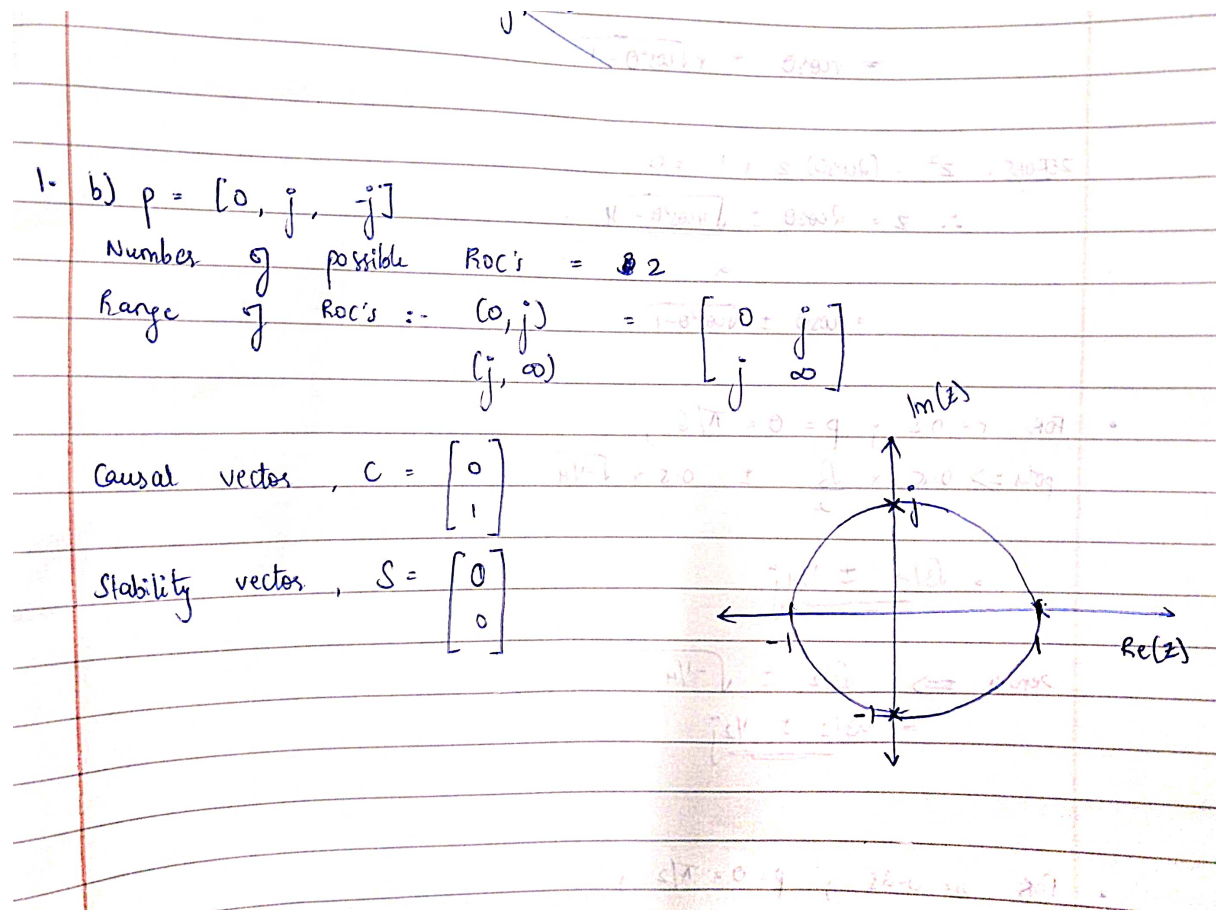 j
1. b) p = [0, j, -j]
Number of possible ROC's = 2
Range of ROC's :- (0, j) = [0 j
(j, ∞) j ∞]
Im(z)
Causal vector, C = [0
1]
j
Stability vector, S = [0
0]
-1 1 Re(z)
-1